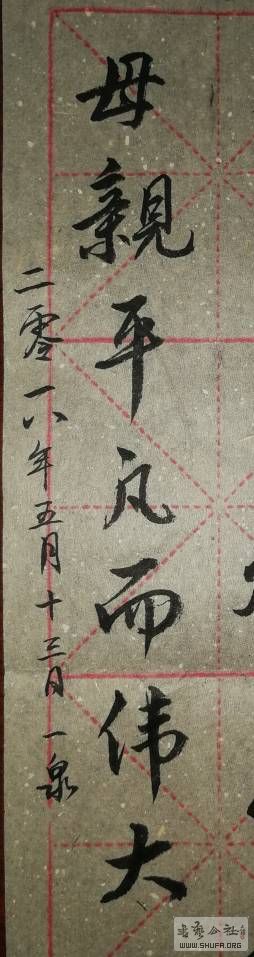 母親平凡而伟大
二零一八年五月十三日 一泉
书艺公社
WWW.SHUFA.ORG